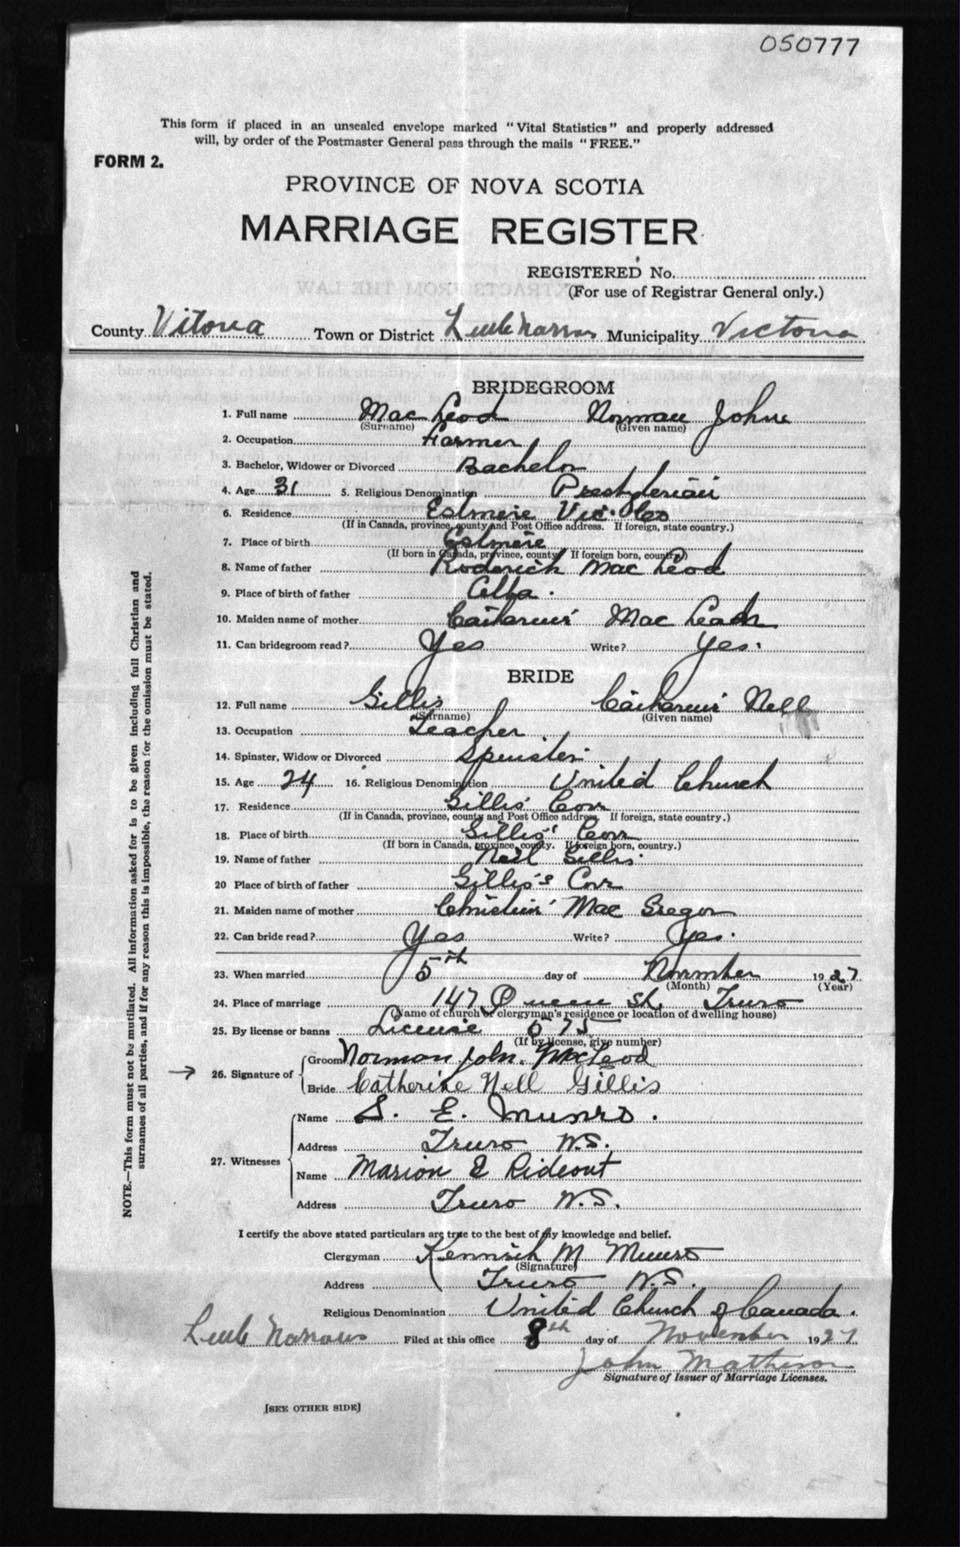 050777
This form if placed in an unsealed envelope marked "Vital Statistics" and properly addressed
will, by order of the Postmaster General pass through the mails "FREE."
FORM 2.
PROVINCE OF NOVA SCOTIA
MARRIAGE REGISTER
REGISTERED No.
(For use of Registrar General only.)
County Vitoria Town or District Little Narrows Municipality Victoria
BRIDEGROOM
1. Full name Mac Leod Norman John
(Surname) (Given name)
2. Occupation Farmer
3. Bachelor, Widower or Divorced Bachelor
4. Age 31 5. Religious Denomination Presbyterian
6. Residence Estmere Vic.
(If in Canada, province, county and Post Office address. If foreign, state country.)
7. Place of birth Estmere
(If born in Canada, province, county. If foreign born, country.)
8. Name of father Roderick Mac Leod
9. Place of birth of father
10. Maiden name of mother Catharine Mac
11. Can bridegroom read? Yes Write? Yes.
BRIDE
12. Full name Gillis Catharine Nell
(Surname) (Given name)
13. Occupation Teacher
14. Spinster, Widow or Divorced Spinster
15. Age 24 16. Religious Denomination United Church
17. Residence Gillis' Cove
(If in Canada, province, county and Post Office address. If foreign, state country.)
18. Place of birth Gillis' Cove
(If born in Canada, province, county. If foreign born, country.)
19. Name of father Neil Gillis
20 Place of birth of father Gillis's Cove
21. Maiden name of mother Christina Mac Gregor
22. Can bride read? Yes Write? Yes.
23. When married 5th day of November 1927
(Month) (Year)
24. Place of marriage 147 Queen St. Truro
(Name of church or clergyman's residence or location of dwelling house)
25. By license or banns License 575
(If by license, give number)
26. Signature of Groom Norman John MacLeod
Bride Catherine Nell Gillis
27. Witnesses Name S. E. Munro.
Address Truro N.S.
Name Marion E Rideout
Address Truro N.S.
I certify the above stated particulars are true to the best of my knowledge and belief.
Clergyman Kenneth M Munro
(Signature)
Address Truro N.S.
Religious Denomination United Church of Canada.
Little Narrows Filed at this office 8th day of November 1927
John Matheson
Signature of Issuer of Marriage Licenses.
[SEE OTHER SIDE]
NOTE.—This form must not be mutilated. All information asked for is to be given including full Christian and
surnames of all parties, and if for any reason this is impossible, the reason for the omission must be stated.